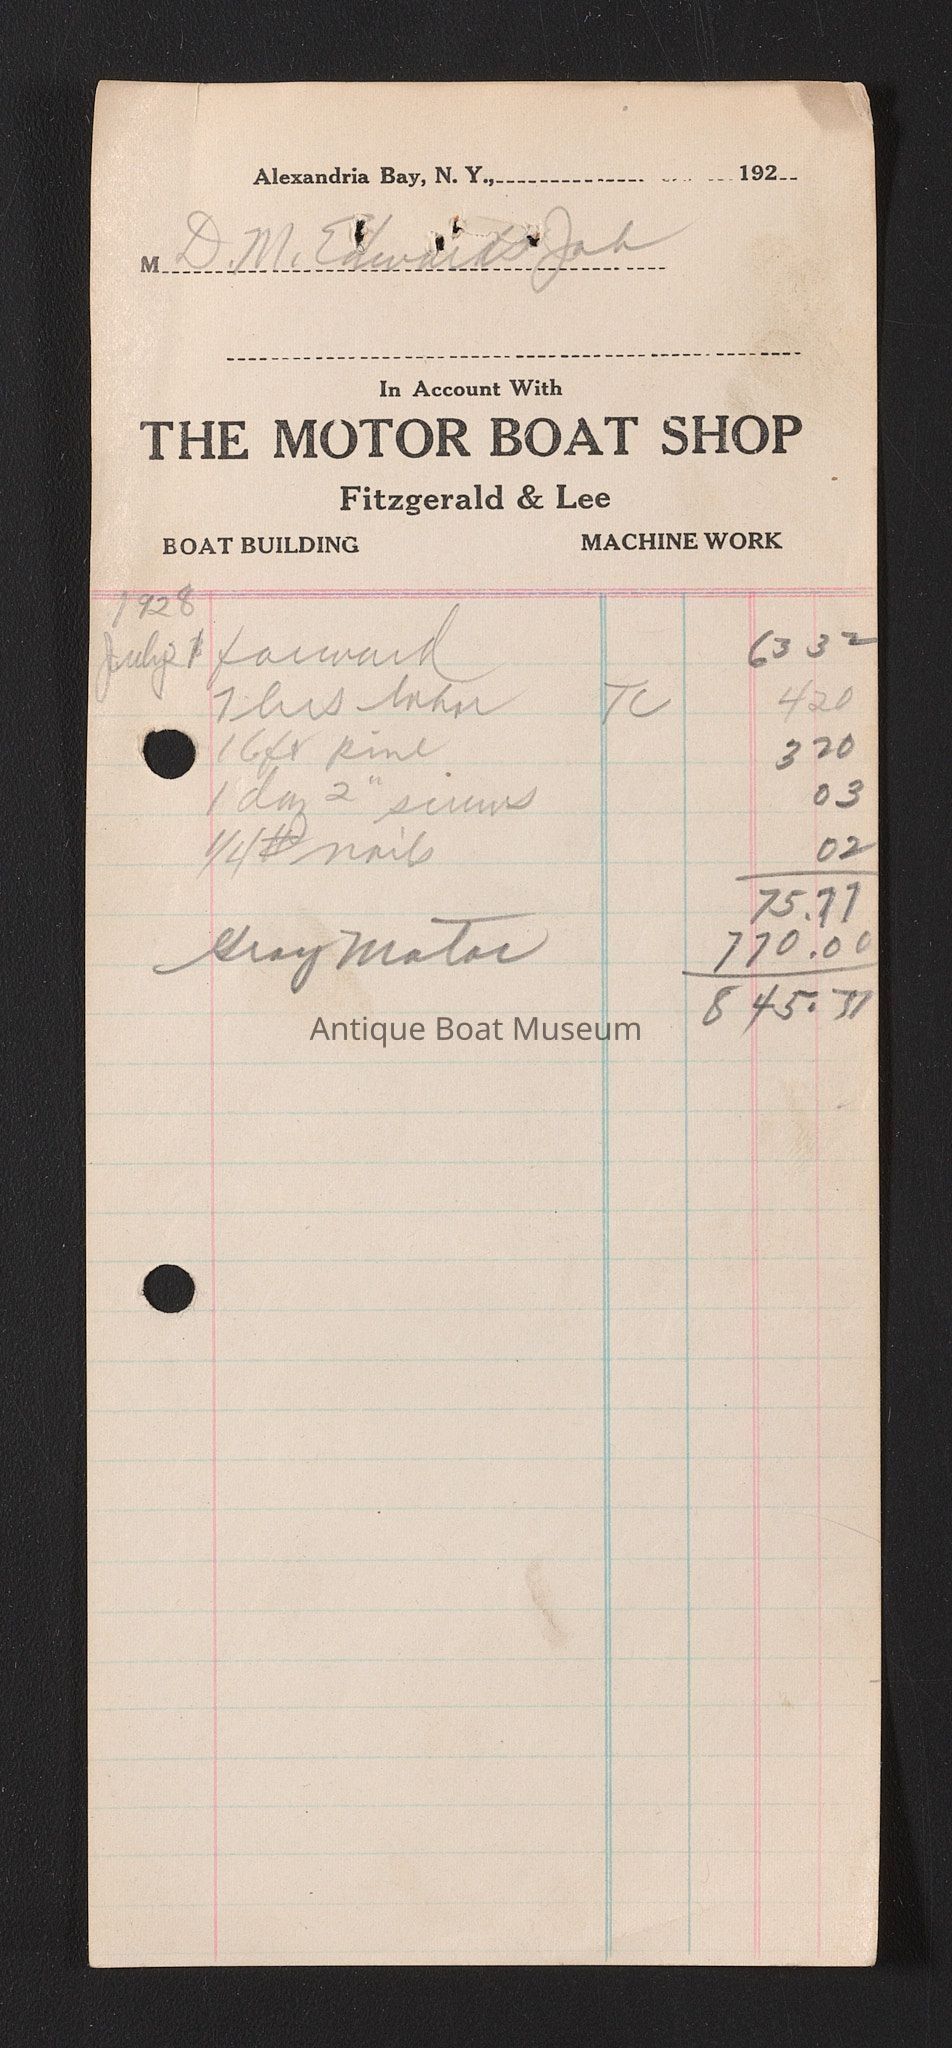 Alexandria Bay, N. Y., 192
M D. M. Edwards Job
In Account With
THE MOTOR BOAT SHOP
Fitzgerald & Lee
BOAT BUILDING MACHINE WORK
1928
July 21 forward 63 32
7 hrs labor TC 4 20
16 ft pine 3 20
1 doz 2" screws 03
1/4 # nails 02
75.77
Gray Motor 770.00
845.77
Antique Boat Museum